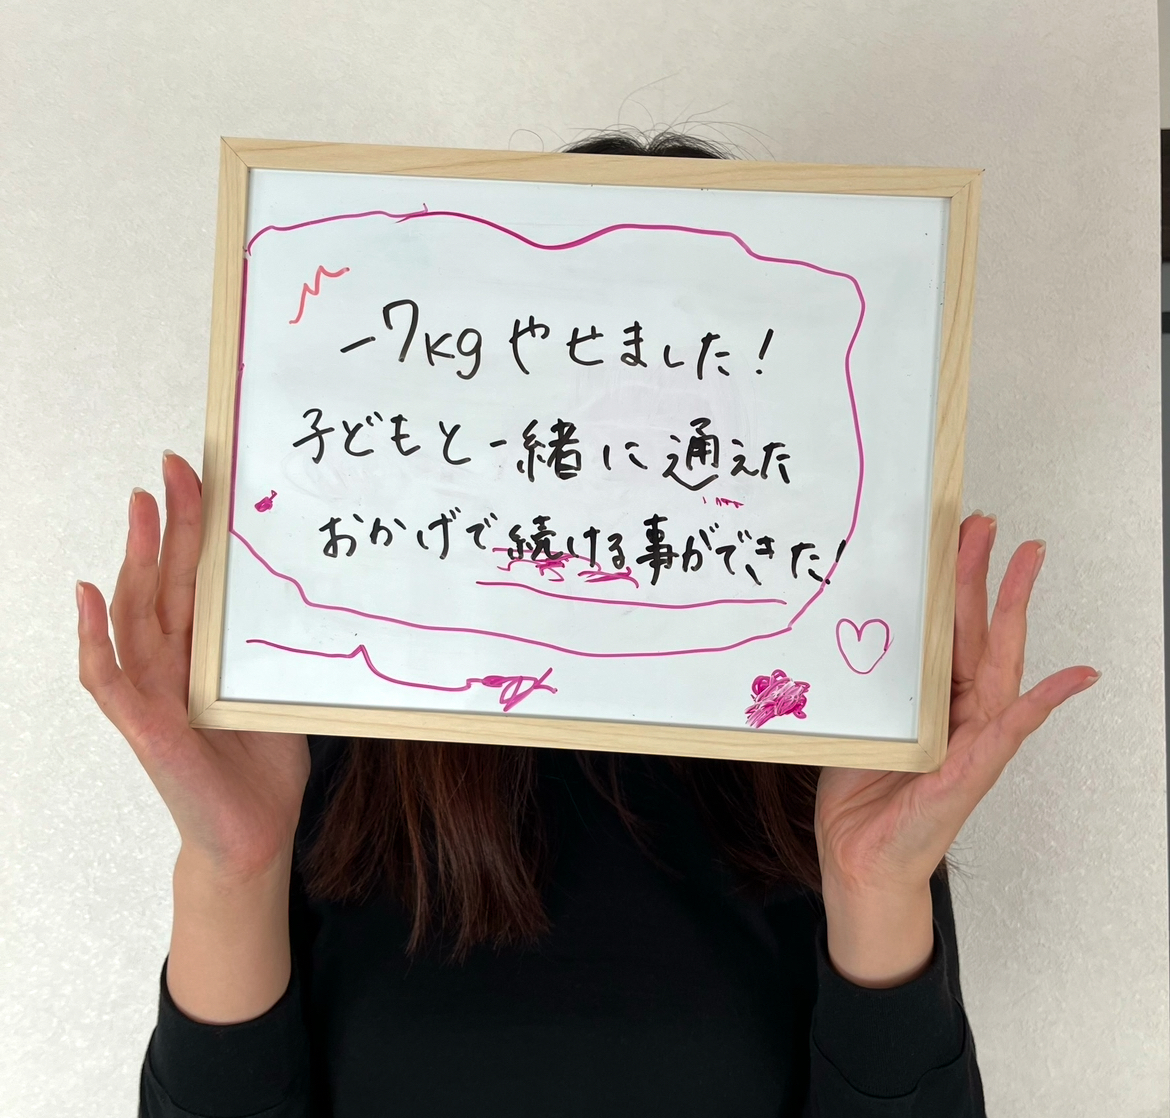 -7kgやせました!
子どもと一緒に通えた
おかげで続ける事ができた!